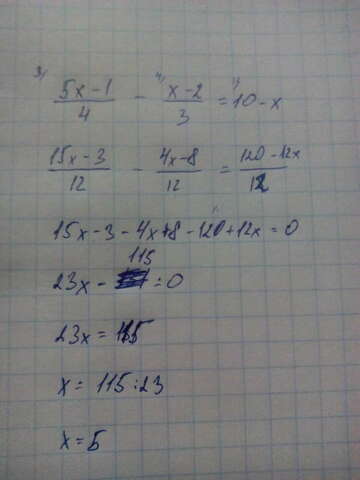 3) 5x-1/4 - 4) x-2/3 = 12) 10-x
15x-3/12 - 4x-8/12 = 120-12x/12
15x-3-4x+8-120+12x=0
23x-115=0
23x=115
x=115:23
x=5